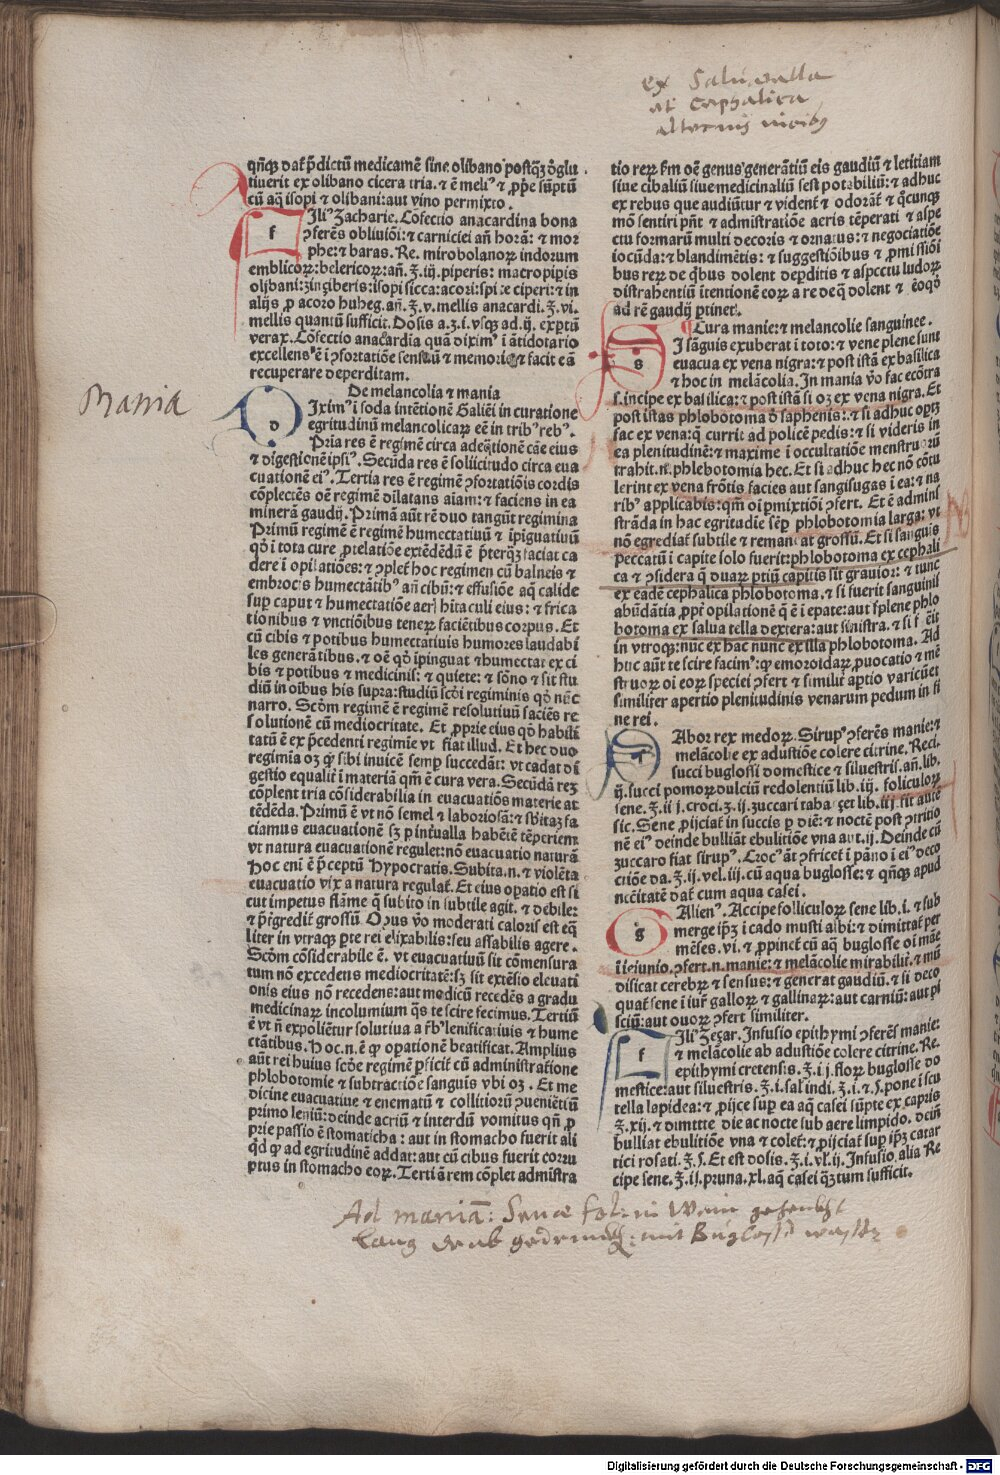 ex Saluatella
et Cephalica
alternis vicibus
qñqꝫ dat᷒ p̄dictū medicamē sine olibano postqꝫ ꝯglu
tiuerit ex olibano cicera tria. ⁊ ē meliꝰ ⁊ ꝓpe sūptū
cū aq̄ isopi ⁊ olibani: aut vino permixto.
Iliꝰ Zacharie. Cōfectio anacardina bona
ꝯferēs obliuiōi: ⁊ caniciei añ horā: ⁊ mor
phe: ⁊ baras. Re. mirobolanoꝝ indorum
emblicoꝝ: belericoꝝ: añ. ʒ. iij. piperis: macropipis
olibani: zinziberis: isopi sicca: acori: spice ciperi: ⁊ in
alijs ꝓ acoro huheg. añ. ʒ. v. mellis anacardi. ʒ. vi.
mellis quantū sufficit. Dosis a. ʒ. i. vsqꝫ ad. ij. expertū
verax. Cōfectio anacardia quā diximꝰ ī ātidotario
excellens ē ī ꝯfortatiōe sensuū ⁊ memorie ⁊ facit eā
recuperare deperditam.
Mania
De melancolia ⁊ mania
d
Iximꝰ ī soda intētionē Galiēi in curatione
egritudinū melancolicaꝝ eē in tribꝰ rebꝰ.
Pria res ē regimē circa adeq̄tionē cāe eius
⁊ digestionē ipsiꝰ. Secūda res ē sollicitudo circa eua
cuationē eiꝰ. Tertia res ē regimē ꝯfortatiōis cordis
cōplectēs oē regimē dilatans aīam: ⁊ faciens in ea
minerā gaudij. Primā aūt rē duo tangūt regimina
Primū regimē ē regimē humectatiuū ⁊ īpiguatiuū
qd̓ ī tota cure ꝓtelatiōe extēdēdū ē p̄terqꝫ faciat ca
dere ī opilatiōes: ⁊ ꝯplet᷒ hoc regimen cū balneis ⁊
embrocis humectātibꝰ añ cibū: ⁊ effusiōe aq̄ calide
suꝑ caput ⁊ humectatiōe aeris hītaculi eius: ⁊ frica
tionibus ⁊ vnctiōibus teneꝝ faciētibus corpus. Et
cū cibis ⁊ potibus humectatiuis humores laudabi
les generātibus. ⁊ oē qd̓ īpinguat ⁊ humectat ex ci
bis ⁊ potibus ⁊ medicinis: ⁊ quiete: ⁊ sōno ⁊ sit stu
diū in oibus his supra: studiū scd̓i regiminis qd̓ nūc
narro. Scd̓m regimē ē regimē resolutiuū faciēs re
solutionē cū mediocritate. Et ꝓprie eius qd̓ habili
tatū ē ex p̄cedenti regimīe vt fiat illud. Et hec duo
regimīa oꝫ ꝙ sibi inuicē semꝑ succedāt: vt cadat di
gestio equalit᷒ ī materiā qm̄ ē cura vera. Secūdā rem
cōplent tria cōsiderabilia in euacuatiōe materie at
tēdēda. Primū ē vt nō semel ⁊ laboriosā: ⁊ sb̓itaꝫ fa
ciamus euacuationē sꝫ ꝑ interualla habētē tēperiem
vt natura euacuationē regulet: nō euacuatio naturā
Hoc eni ē p̄ceptū Hypocratis. Subita. n. ⁊ violēta
euacuatio vix a natura regulat᷒. Et eius opatio est si
cut impetus flāme q̄ subito in subtile agit. ⁊ debile:
⁊ p̄tergredit᷒ grossū. Opus v̄o moderati caloris est eq̄
liter in vtraqꝫ ꝑte rei elixabilis: seu assabilis agere.
Scd̓m cōsiderabile ē. vt euacuatiuū sit cōmensura
tum nō excedens mediocritatē: sꝫ sit extēsio eleuati
onis eius nō recedens: aut medicū recedēs a gradu
medicinaꝝ incolumium q̄s te scire fecimus. Tertiū
ē vt n̄ expolietur solutiua a ꝟb̓ lenificatiuis ⁊ hume
ctātibus. Hoc. n. ē ꝙ oꝑationē beatificat. Amplius
aūt rei huius scd̓e regimē ꝑficit᷒ cū administratione
phlobotomie ⁊ subtractiōe sanguis vbi oꝫ. Et me
dicine euacuatiue ⁊ enematū ⁊ collitioriū ꝯueniētiū
primo leniū: deinde acriū ⁊ interdū vomitus qn̄ ꝓ
prie passio ē stomaticha: aut in stomacho fuerit ali
qd̓ ꝙ ad egritudinē addat: aut cū cibus fuerit corru
ptus in stomacho eoꝝ. Tertiā rem cōplet admistra
tio reꝝ sm̄ oē genus generātiū eis gaudiū ⁊ letitiam
siue cibaliū siue medicinaliū seu potabiliū: ⁊ adhuc
ex rebus que audiūtur ⁊ vident᷒ ⁊ odorāt᷒ ⁊ q̄cunqꝫ
mō sentiri pn̄t ⁊ admistratiōe aeris tēperati ⁊ aspe
ctu formarū multi decoris ⁊ ornatus: ⁊ negociatiōe
iocūda: ⁊ blandimētis: ⁊ suggestiōibus ⁊ ꝓmissiōi
bus reꝝ de q̄bus dolent deꝑditis ⁊ aspectu ludoꝝ
distrahentiū ītentionē eoꝝ a re de q̄ dolent ⁊ eoqd̓
ad rē gaudij ꝑtinet.
Cura manie: ⁊ melancolie sanguinee.
s
I sāguis exuberat ī toto: ⁊ vene plene sunt
euacua ex vena nigra: ⁊ post istā ex basilica
⁊ hoc in melācolia. In mania v̄o fac ecōtra
s. incipe ex basilica: ⁊ post istā si oꝫ ex vena nigra. Et
post istas phlobotoma d̓ saphenis: ⁊ si adhuc optꝫ
fac ex vena: q̄ currit ad policē pedis: ⁊ si videris in
ea plenitudinē: ⁊ maxime ī occultatiōe menstruoꝝ
trahit. n. phlebotomia hec. Et si adhuc hec nō cōtu
lerint ex vena frōtis facies aut sangisugas ī ea: ⁊ na
ribꝰ applicabis: qm̄ oī ꝑmixtiōi ꝯfert. Et ē admini
strāda in hac egritudīe sēꝑ phlobotomia larga: vt
nō egrediat᷒ subtile ⁊ remaneat grossū. Et si sanguis
peccatū ī capite solo fuerit: phlobotoma ex cephali
ca ⁊ ꝯsidera q̄ duaꝝ ꝑtiū capitis sit grauior: ⁊ tunc
ex eadē cephalica phlobotoma. ⁊ si fuerit sanguinis
abūdātia ꝓpt᷒ opilationē q̄ ē ī epate: aut splene phlo
botoma ex salua tella dextera: aut sinistra. ⁊ si f. ēst
in vtroqꝫ: nūc ex hac nunc ex illa phlobotoma. Ad
huc aūt te scire facimꝰ: ꝙ emoroidaꝝ ꝓuocatio ⁊ mē
struoꝝ oi eoꝝ speciei ꝯfert ⁊ similit᷒ aꝑtio varicū et
similiter apertio plenitudinis venarum pedum in fi
ne rei.
Abor rex medoꝝ. Sirupꝰ ꝯferēs manie: ⁊
melācolie ex adustiōe colere citrine. Reci.
succi buglossi domestice ⁊ siluestris. añ. lib.
ij. succi pomoꝝ dulciū redolentiū lib. iij. foliculoꝝ
sene. ʒ. iij. croci. ʒ. ij. zuccari tabarzet lib. iij. fit aūt
sic. Sene ꝓijciat᷒ in succis ꝑ diē: ⁊ noctē post ꝯtritio
nē eiꝰ deinde bulliāt ebulitiōe vna aut. ij. Deinde cū
zuccaro fiat sirupꝰ. Crocꝰ āt ꝯfricet᷒ ī pāno ī eiꝰ deco
ctiōe da. ʒ. ij. vel. iij. cū aqua buglosse: ⁊ qñqꝫ apud
necēitatē dat᷒ cum aqua casei.
g
Alienꝰ. Accipe folliculoꝝ sene lib. i. ⁊ sub
merge ip̄ꝫ ī cado musti albi: ⁊ dimittat᷒ ꝑ
mēses. vi. ⁊ ꝓpinet᷒ cū aq̄ buglosse oī māe
ī ieiunio. ꝯfert. n. manie: ⁊ melācolie mirabilit᷒. ⁊ mū
dificat cerebꝝ ⁊ sensus: ⁊ generat gaudiū. ⁊ si deco
quat᷒ sene ī iur̓ galloꝝ ⁊ gallinaꝝ: aut carniū: aut pi
sciū: aut ouoꝝ ꝯfert similiter.
f
Iliꝰ Zezar. Infusio epithymi ꝯferēs manie:
⁊ melācolie ab adustiōe colere citrine. Re.
epithymi cretensis. ʒ. ij. floꝝ buglosse do
mestice: aut siluestris. ʒ. i. sal̓ indi. ʒ. i. ⁊. s. pone ī scu
tella lapidea: ⁊ ꝓijce suꝑ ea aq̄ casei sūpte ex capris
ʒ. xij. ⁊ dimitte die ac nocte sub aere limpido. dein̄
bulliat ebulitiōe vna ⁊ colet᷒: ⁊ ꝓijciat᷒ suꝑ ip̄ꝫ catar
tici rosati. ʒ. s. Et est dosis. ʒ. i. vl̓. ij. Infusio alia Re
cipe sene. ʒ. ij. pruna. xl. aq̄ casei q̄ꝫtum sufficit.
Ad maniā: Senae fol: in Wein gehenckht
lang, drab gedrunckh: mit Buglossē wasser
Digitalisierung gefördert durch die Deutsche Forschungsgemeinschaft - DFG